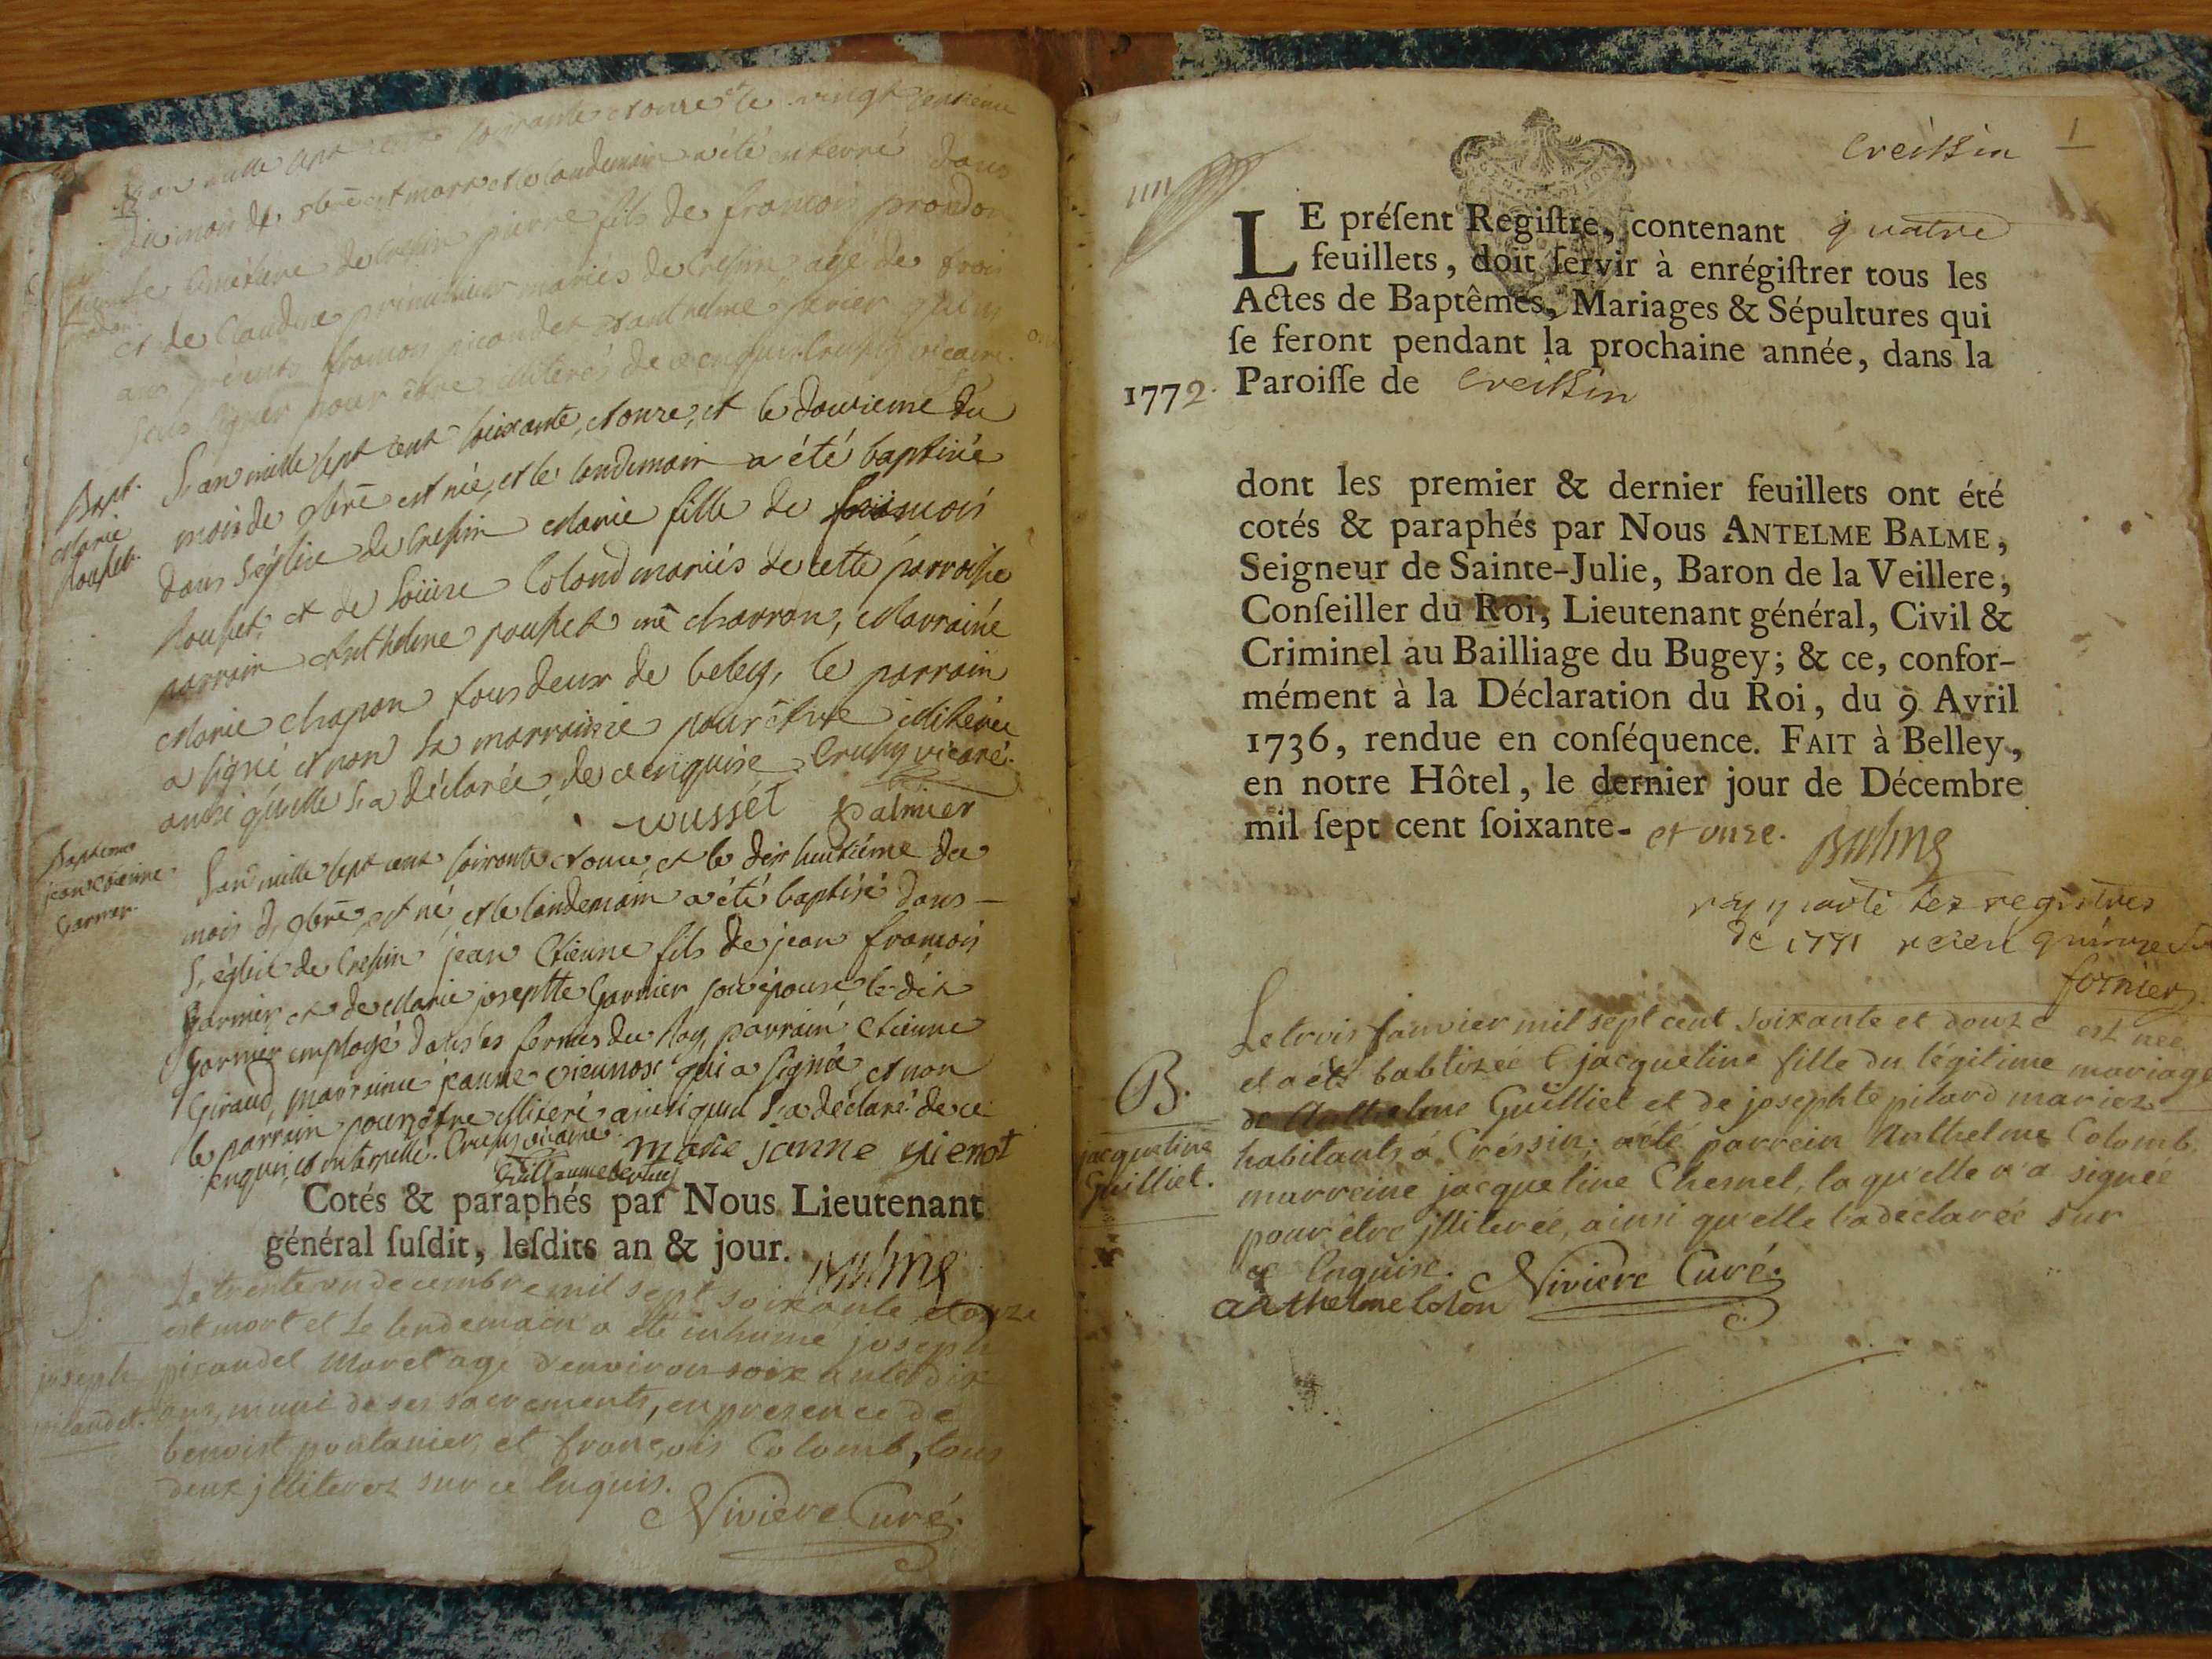 L'an mille sept cent soixante et onze et le vingt
du mois de xbre est mort et le landemain a été enterré dans
le cimetiere de Cressin pierre fils de francois prondon
et de Claudine mariés de Cressin agé de trois
ans présents francois picandet et anthelme qui n'ont
seus signer pour être illiterés de ce enquis. Cruzy vicaire.
Bapt.
Marie
Rousset.
L'an mille sept cent soixante, et onze, et le douzieme du
mois de xbre est née, et le lendemain a été baptisée
dans l'église de Cressin Marie fille de francois
Rousset, et de Louise Coland mariés de cette parroisse
parrain Anthelme rousset me charron, Marraine
Marie chapon tous deux de beley, le parrain
a signé et non la marrainne pour être illiterée
ainsi qu'elle l'a déclarée, de ce enquise Cruzy vicaire.
rousset palmier
Bapteme
jean etienne
Garmier.
L'an mille sept cent soixante et onze, et le dix huitième du
mois de xbre, est né, et le landemain a été baptisé dans
l'église de Cressin jean Etienne fils de jean francois
Garmier et de Marie josephtte Garnier son épouse le dit
Garmier employé dans les fermes du Roy, parrain Etienne
Giraud, marrainne jeanne vienot qui a signée et non
le parrain pour être illiteré ainsi qu'il l'a déclaré de ce
enquis, et interpellé. Cruzy vicaire. marie janne vienot
Guillaume
Cotés & paraphés par Nous Lieutenant
général ſuſdit, leſdits an & jour. Balme
S.
joseph
picandet.
Le trente un decembre mil sept soixante et onze
est mort et le lendemain a été inhumé joseph
picandet Moret agé d'environ soixante dix
ans, muni de ses sacrements, en presence de
benoist pontanier, et françois Colomb, tous
deux jlliterez sur ce Enquis.
Viviere Curé.
Creissin 1
LE préſent Regiſtre, contenant quatre
feuillets, doit ſervir à enrégiſtrer tous les
Actes de Baptêmes, Mariages & Sépultures qui
ſe feront pendant la prochaine année, dans la
1772. Paroiſſe de Creissin
dont les premier & dernier feuillets ont été
cotés & paraphés par Nous ANTELME BALME,
Seigneur de Sainte-Julie, Baron de la Veillere,
Conſeiller du Roi, Lieutenant général, Civil &
Criminel au Bailliage du Bugey; & ce, confor-
mément à la Déclaration du Roi, du 9 Avril
1736, rendue en conſéquence. FAIT à Belley,
en notre Hôtel, le dernier jour de Décembre
mil ſept cent ſoixante- et onze. Balme
les registres
de 1771
fornier
B.
jacqueline
Guilliet.
Le trois janvier mil sept cent soixante et douze est née
et a été babtizée jacqueline fille du légitime mariage
de Anthelme Guilliet et de josephte pilard mariez
habitants à Créssin; a été parrein Anthelme Colomb,
marreine jacqueline Chesnel, laquelle n'a signée
pour être jlliterée, ainsi qu'elle l'a déclarée sur
ce Enquise.
anthelme Colon Viviere Curé.